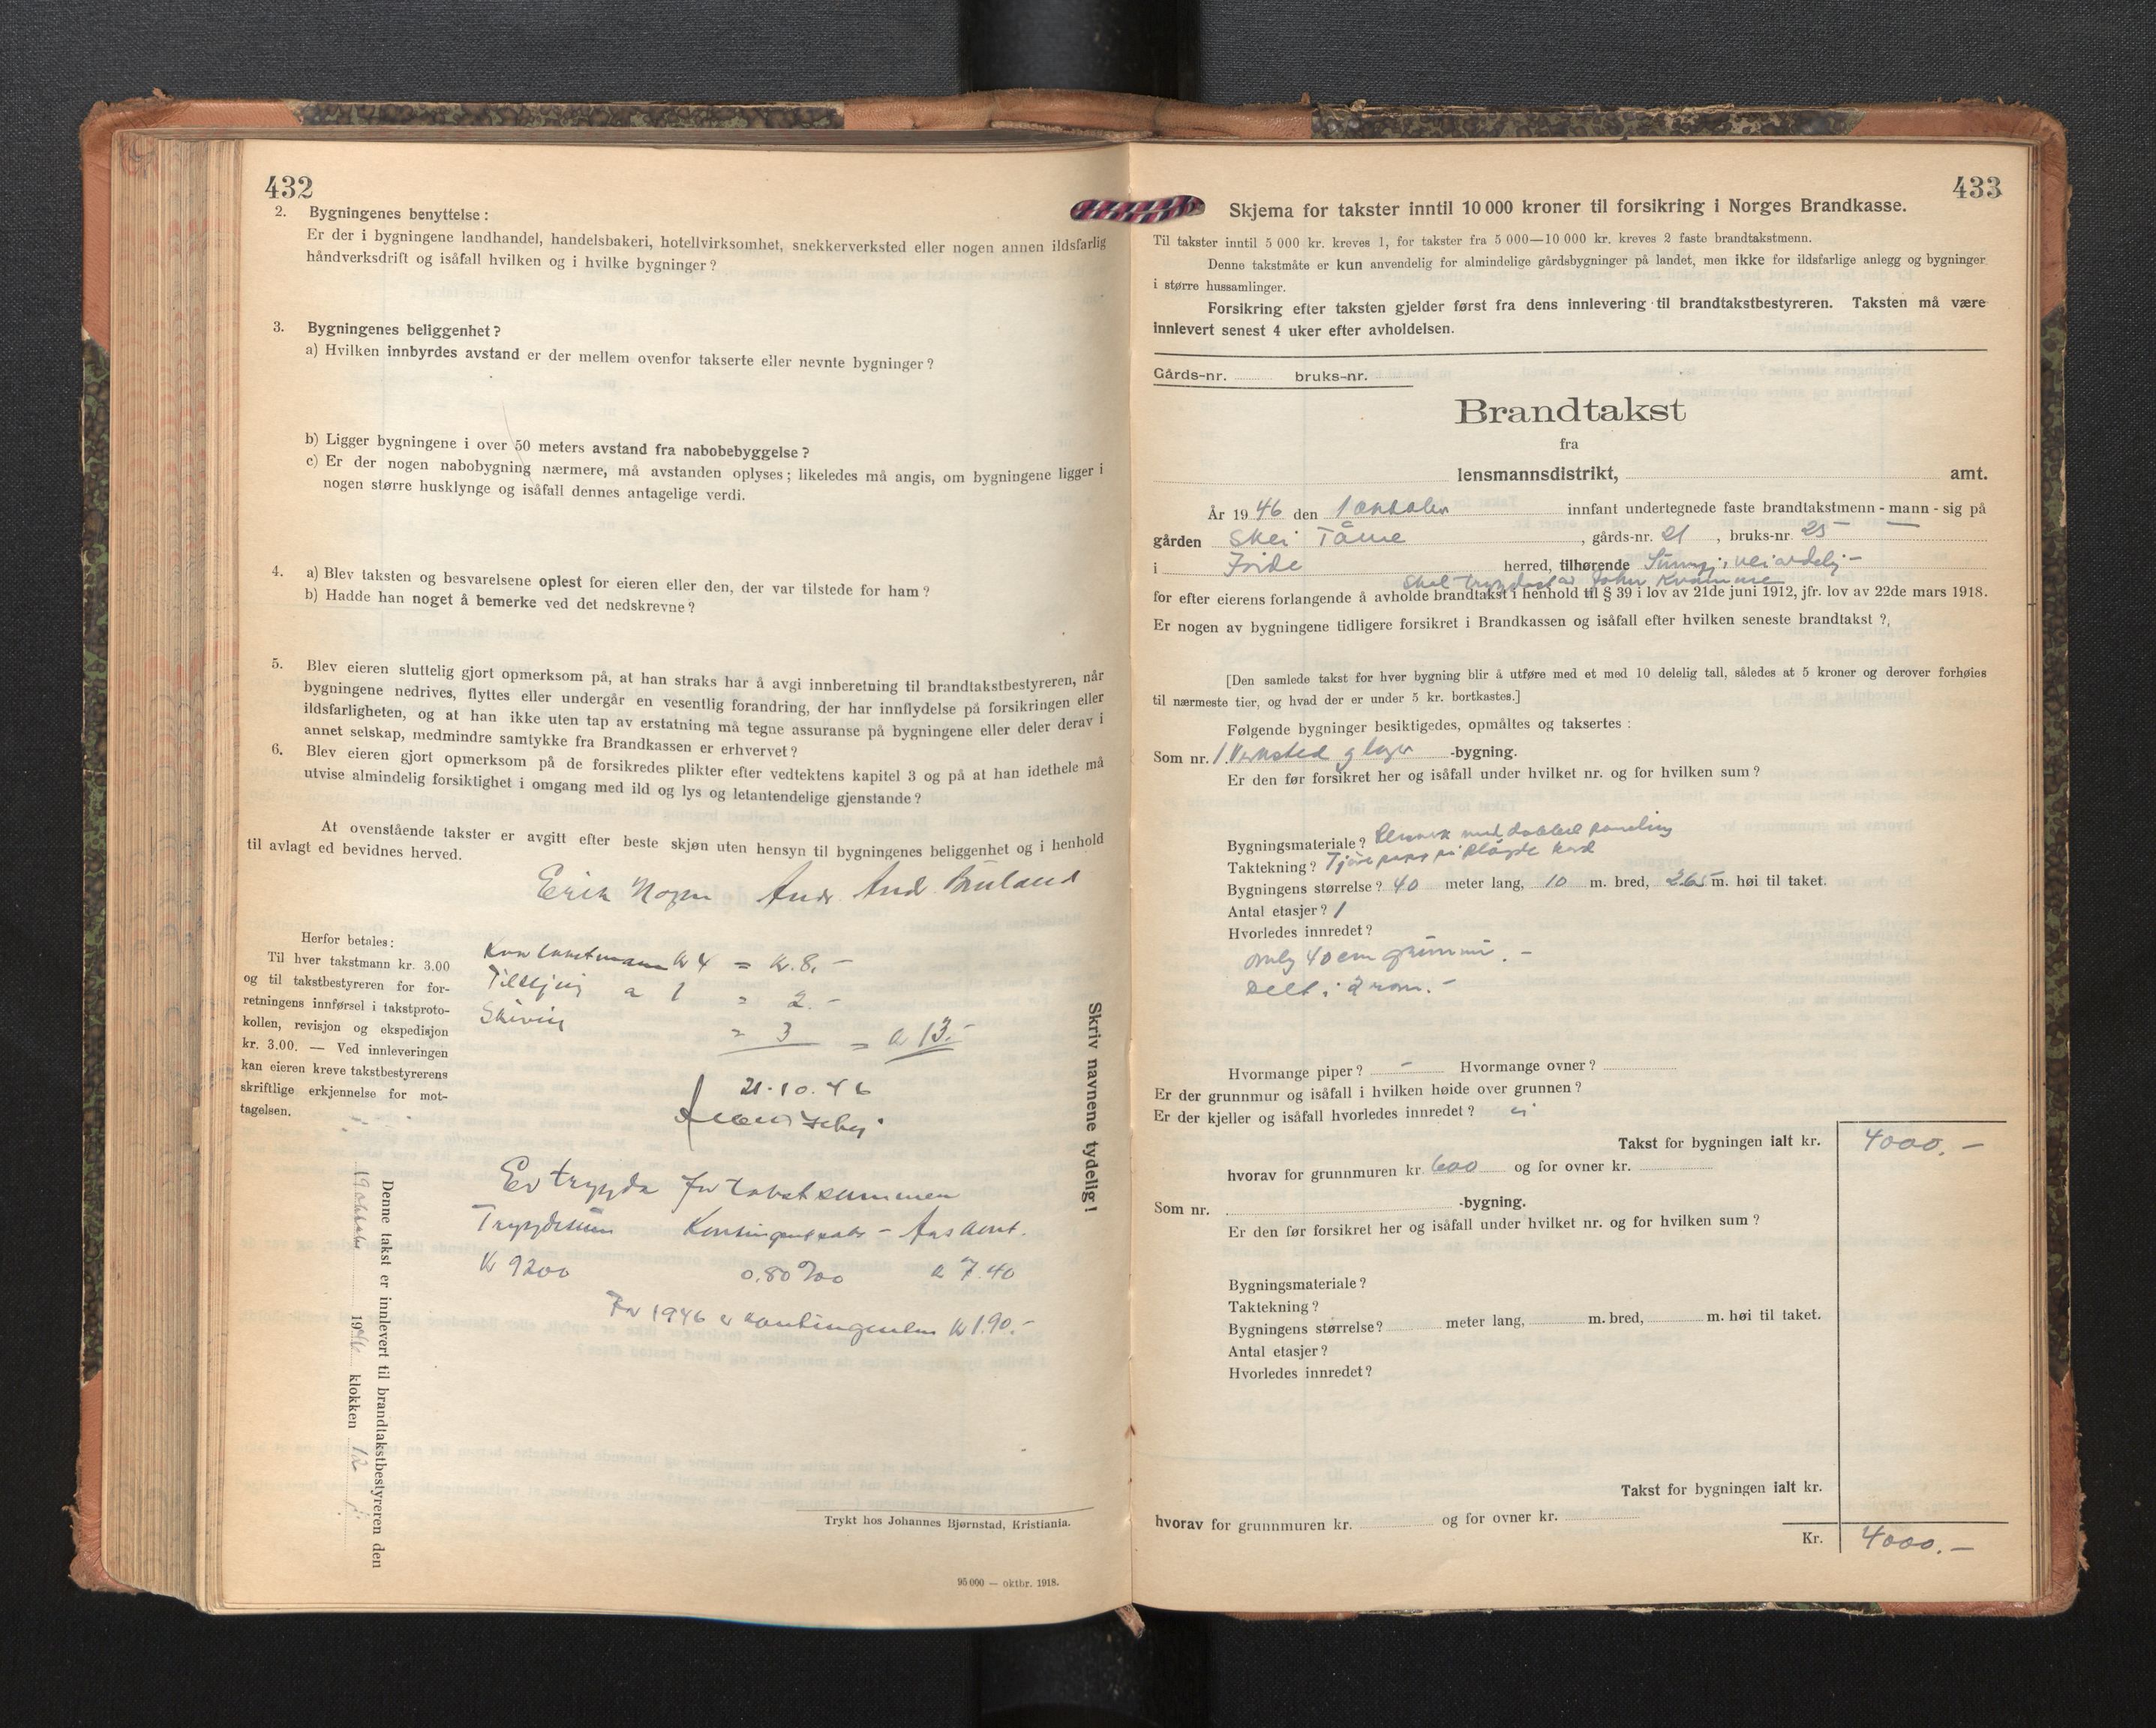 432
2. Bygningenes benyttelse :
Er der i bygningene landhandel, handelsbakeri, hotellvirksomhet, snekkerverksted eller nogen annen ildsfarlig
håndverksdrift og isåfall hvilken og i hvilke bygninger ?
3. Bygningenes beliggenhet ?
a) Hvilken innbyrdes avstand er der mellem ovenfor takserte eller nevnte bygninger ?
b) Ligger bygningene i over 50 meters avstand fra nabobebyggelse ?
c) Er der nogen nabobygning nærmere, må avstanden oplyses ; likeledes må angis, om bygningene ligger i
nogen større husklynge og isåfall dennes antagelige verdi.
4. a) Blev taksten og besvarelsene oplest for eieren eller den, der var tilstede for ham ?
b) Hadde han noget å bemerke ved det nedskrevne ?
5. Blev eieren sluttelig gjort opmerksom på, at han straks har å avgi innberetning til brandtakstbestyreren, når
bygningene nedrives, flyttes eller undergår en vesentlig forandring, der har innflydelse på forsikringen eller
ildsfarligheten, og at han ikke uten tap av erstatning må tegne assuranse på bygningene eller deler derav i
annet selskap, medmindre samtykke fra Brandkassen er erhvervet ?
6. Blev eieren gjort opmerksom på de forsikredes plikter efter vedtektens kapitel 3 og på at han idethele må
utvise almindelig forsiktighet i omgang med ild og lys og letantendelige gjenstande ?
At ovenstående takster er avgitt efter beste skjøn uten hensyn til bygningenes beliggenhet og i henhold
til avlagt ed bevidnes herved.
Erik Andr. And. Bruland
Herfor betales :
Til hver takstmann kr. 3.00
og til takstbestyreren for for-
retningens innførsel i takstproto-
kollen, revisjon og ekspedisjon
kr. 3.00. — Ved innleveringen
kan eieren kreve takstbestyrerens
skriftlige erkjennelse for mot-
tagelsen.
kr 4 = kr. 8.-
a 1 = 2.-
Skriving = 3 = kr 13.-
21.10.46
Er trygda for takstsummen
Trygdesum Kontingentsats - Aarskont.
Kr 9200 0.80 ‰ kr 7.40
For 1946 er kontingenten kr 1.90.-
Skriv navnene tydelig !
Denne takst er innlevert til brandtakstbestyreren den
19 oktober 1946 klokken 12
Trykt hos Johannes Bjørnstad, Kristiania.
95 000 — oktbr. 1918.
433
Skjema for takster inntil 10 000 kroner til forsikring i Norges Brandkasse.
Til takster inntil 5 000 kr. kreves 1, for takster fra 5 000—10 000 kr. kreves 2 faste brandtakstmenn.
Denne takstmåte er kun anvendelig for almindelige gårdsbygninger på landet, men ikke for ildsfarlige anlegg og bygninger
i større hussamlinger.
Forsikring efter taksten gjelder først fra dens innlevering til brandtakstbestyreren. Taksten må være
innlevert senest 4 uker efter avholdelsen.
Gårds-nr. bruks-nr.
Brandtakst
fra
lensmannsdistrikt, amt.
År 1946 den 1 oktober innfant undertegnede faste brandtakstmenn - mann - sig på
gården Skei , gårds-nr. 21 , bruks-nr. 25
i Förde herred, tilhørende
Skal trygdast av John Kvamme
for efter eierens forlangende å avholde brandtakst i henhold til § 39 i lov av 21de juni 1912, jfr. lov av 22de mars 1918.
Er nogen av bygningene tidligere forsikret i Brandkassen og isåfall efter hvilken seneste brandtakst ?
[Den samlede takst for hver bygning blir å utføre med et med 10 delelig tall, således at 5 kroner og derover forhøies
til nærmeste tier, og hvad der er under 5 kr. bortkastes.]
Følgende bygninger besiktigedes, opmåltes og taksertes :
Som nr. 1. Verksted og lager -bygning.
Er den før forsikret her og isåfall under hvilket nr. og for hvilken sum ?
Bygningsmateriale ? med dobbel paneling
Taktekning ? Tjærepapp på pløgde bord
Bygningens størrelse ? 40 meter lang, 10 m. bred, 2.65 m. høi til taket.
Antal etasjer ? 1
Hvorledes innredet ?
40 cm grunnmur. -
Delt i 2 rom. -
Hvormange piper ? - Hvormange ovner ?
Er der grunnmur og isåfall i hvilken høide over grunnen ?
Er der kjeller og isåfall hvorledes innredet ? ei
Takst for bygningen ialt kr. 4000.-
hvorav for grunnmuren kr. 600 og for ovner kr.
Som nr. -bygning.
Er den før forsikret her og isåfall under hvilket nr. og for hvilken sum ?
Bygningsmateriale ?
Taktekning ?
Bygningens størrelse ? meter lang, m. bred, m. høi til taket.
Antal etasjer ?
Hvorledes innredet ?
Takst for bygningen ialt kr.
hvorav for grunnmuren kr. og for ovner kr.
Kr. 4000.-